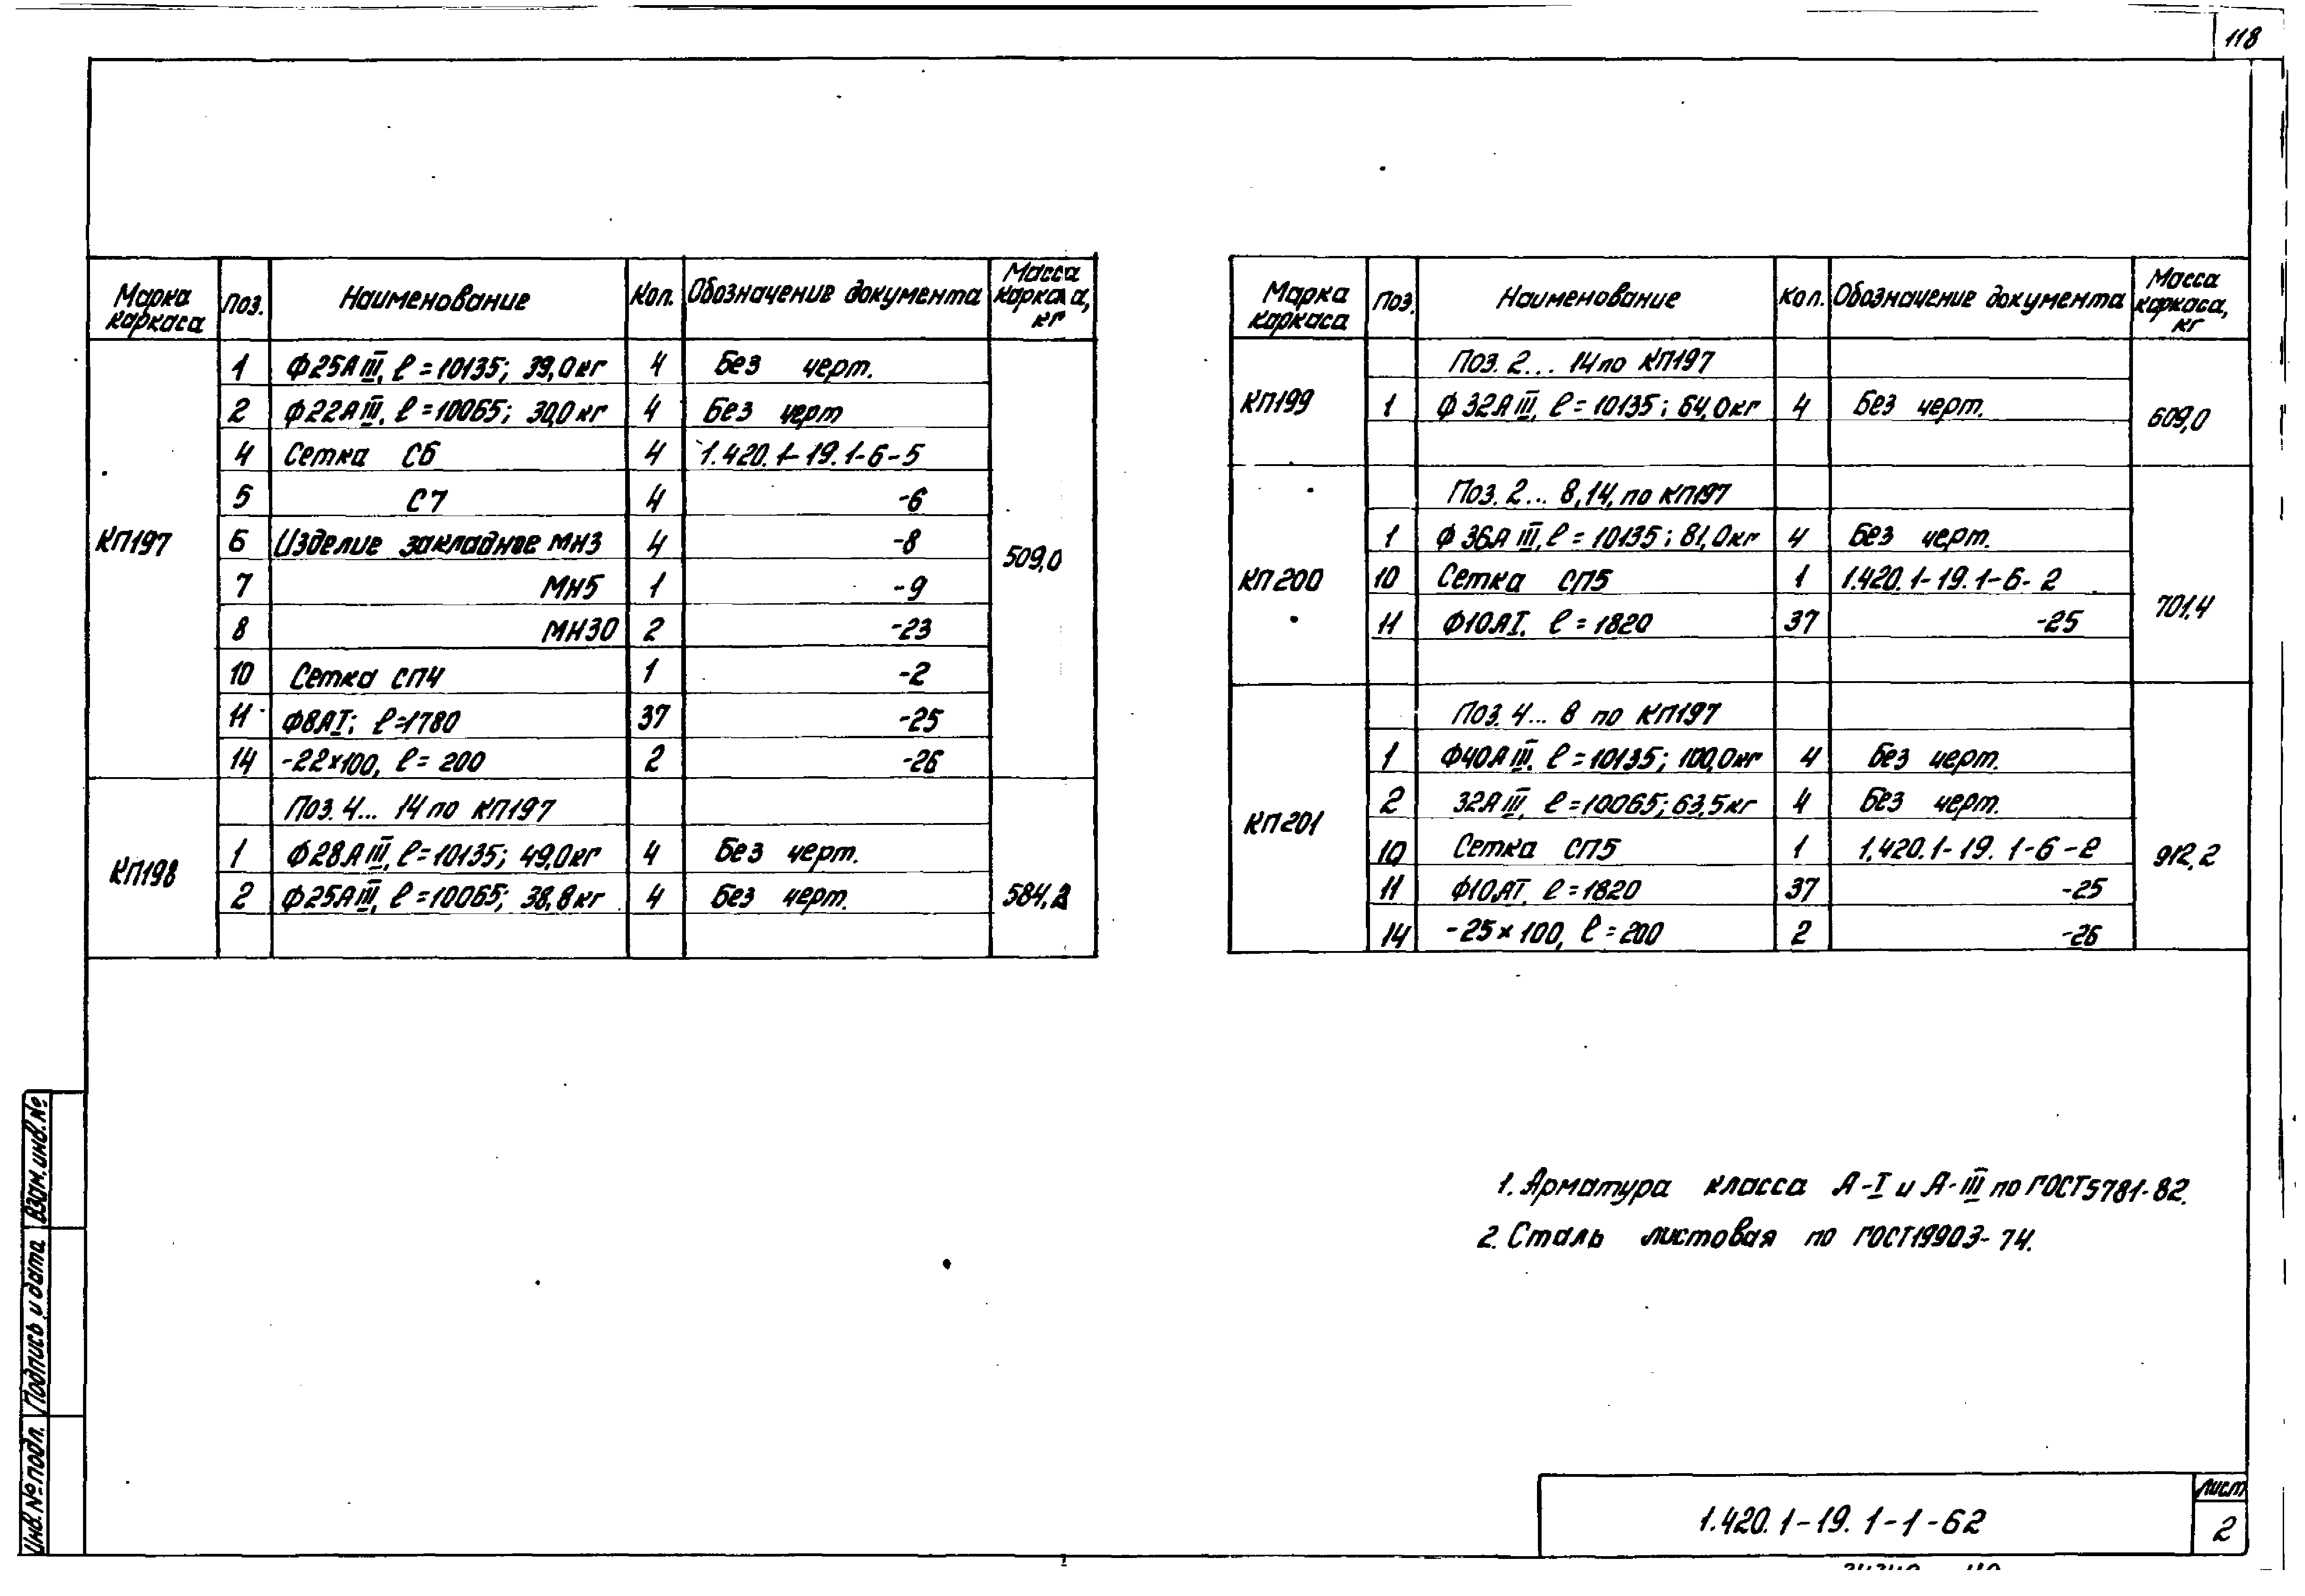 118
Марка каркаса Поз. Наименование Кол. Обозначение документа Масса каркаса, кг
КП197 509,0
1 Ф25АIII, ℓ=10135; 39,0кг 4 Без черт.
2 Ф22АIII, ℓ=10065; 30,0кг 4 Без черт
4 Сетка С6 4 1.420.1-19.1-6-5
5 С7 4 -6
6 Изделие закладное МН3 4 -8
7 МН5 1 -9
8 МН30 2 -23
10 Сетка СП4 1 -2
11 Ф8АI; ℓ=1780 37 -25
14 -22×100, ℓ=200 2 -26
КП198
Поз. 4... 14 по КП197
1 Ф28АIII, ℓ=10135; 49,0кг 4 Без черт.
2 Ф25АIII, ℓ=10065; 38,8кг 4 Без черт.
Марка каркаса Поз. Наименование Кол. Обозначение документа Масса каркаса, кг
КП199 609,0
Поз. 2... 14 по КП197
1 Ф32АIII, ℓ=10135; 64,0кг 4 Без черт.
КП200 701,4
Поз. 2... 8,14, по КП197
1 Ф36АIII, ℓ=10135; 81,0кг 4 Без черт.
10 Сетка СП5 1 1.420.1-19.1-6-2
11 Ф10АI, ℓ=1820 37 -25
КП201 912,2
Поз. 4... 8 по КП197
1 Ф40АIII, ℓ=10135; 100,0кг 4 Без черт.
2 32АIII, ℓ=10065; 63,5кг 4 Без черт.
10 Сетка СП5 1 1.420.1-19.1-6-2
11 Ф10АI, ℓ=1820 37 -25
14 -25×100, ℓ=200 2 -26
1. Арматура класса А-I и А-III по ГОСТ 5781-82.
2. Сталь листовая по ГОСТ 19903-74.
Инв.№ подл. Подпись и дата Взам.инв.№
1.420.1-19.1-1-62
Лист
2